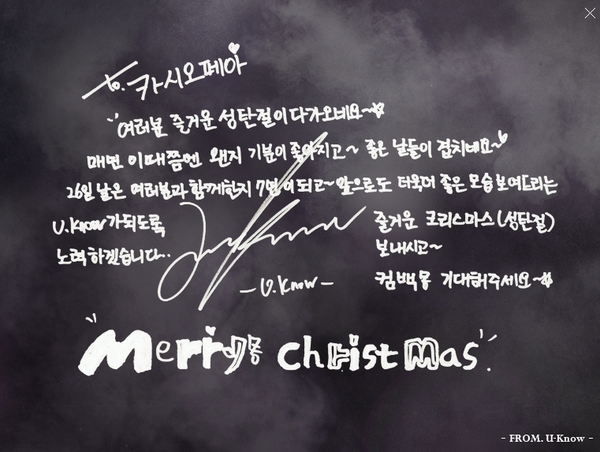 to. 카시오페아
여러분 즐거운 성탄절이 다가오네요~
매면 이때쯤엔 왠지 기분이 좋아지고~ 좋은 날들이 겹치네요~
26일 날은 여러분과 함께한지 7년이 되고~ 앞으로도 더욱더 좋은 모습 보여드리는
U.Know가 되도록
노력하겠습니다..
즐거운 크리스마스(성탄절)
보내시고~
컴백몽 기대해주세요~
- U.Know -
"Merry christmas".
- FROM. U-Know -